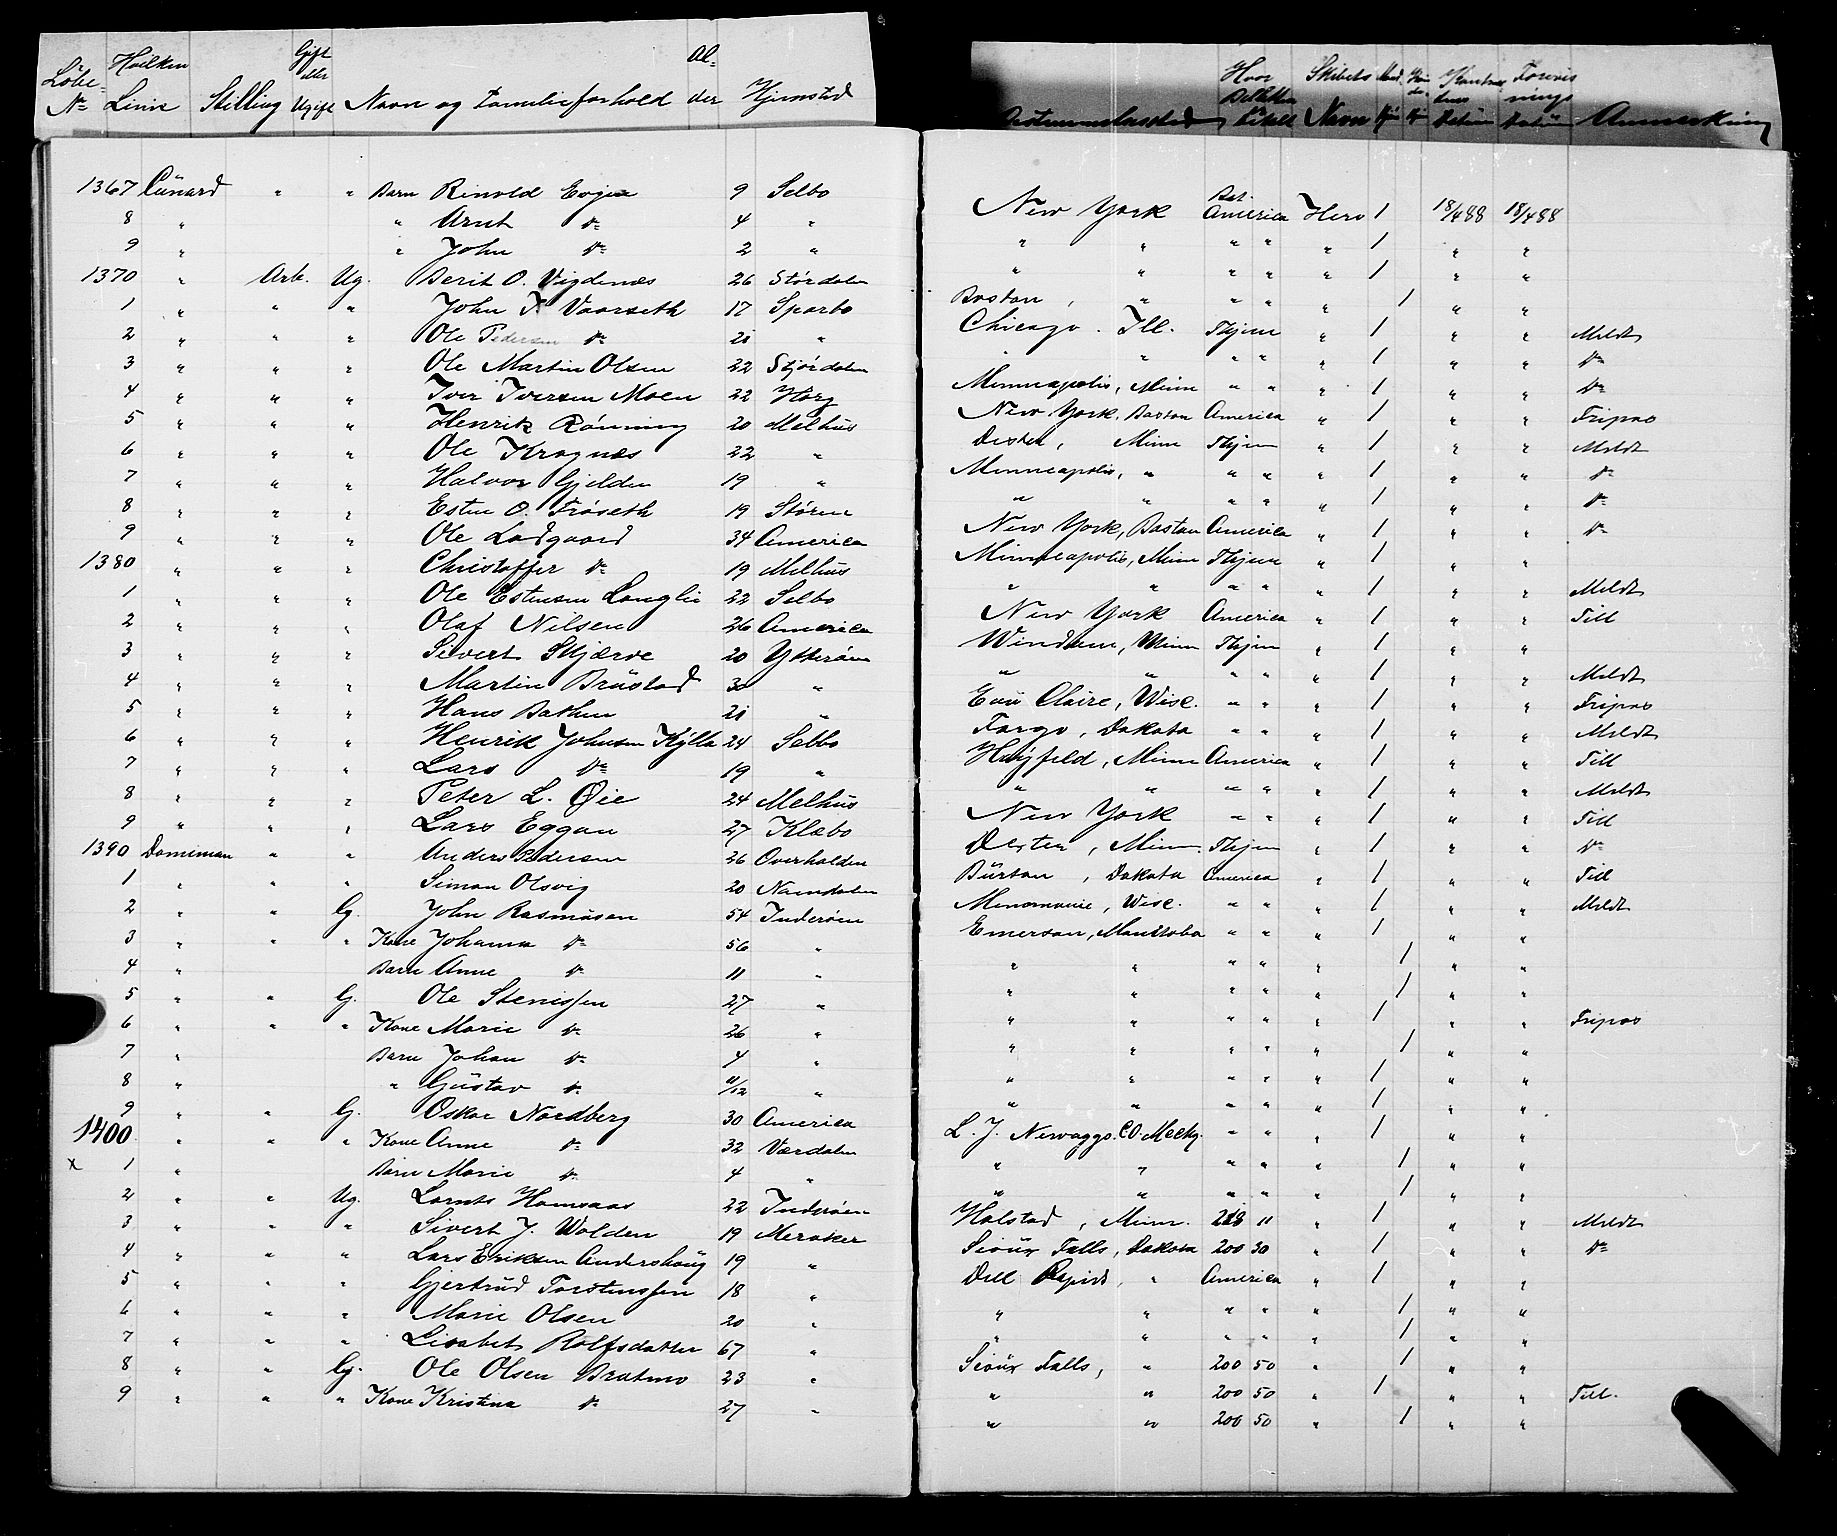 Löbe- Nº Hvilken Linie Stilling Gift eller Ugift Navn og Familieforhold Al- der Hjemsted
Hvor Billetten Skibets Navn Anmerkning
1367 Cunard " " Barn Rinold Evjen 9 Selbo New York Bet. America Hero 1 18/4 88 18/4 88
8 " " Arnt do 4 " " " " " " 1 " "
9 " " John do 2 " " " " " " 1 " "
1370 " Arb. Ug. Berit O. Vigdenæs 26 Stördalen Boston, " " " " 1 " "
1 " " " John Vaarseth 17 Sparbo Chicago. Ill. Thjem " 1 " " Meldt
2 " " " Ole Pedersen do 21 " " " " " " 1 " " do
3 " " " Ole Martin Olsen 22 Stjördalen Minneapolis, Minn " " " 1 " " do
4 " " " Iver Iversen Moen 22 Horg New York. Boston America " 1 " " Fripas
5 " " " Henrik Rönning 20 Melhus Dexter, Minn Thjem " 1 " " Meldt
6 " " " Ole Kragnæs 22 " Minneapolis, " " " " 1 " " do
7 " " " Halvor Gjelden 19 " " " " " " 1 " " do
8 " " " Esten O. Fröseth 19 Stören New York, Boston America " 1 " " do
9 " " " Ole Ladgaard 34 America Minneapolis, Minn Thjem " 1 " "
1380 " " " Christoffer do 19 Melhus " " " " " 1 " " Meldt
1 " " " Ole Estensen Langlie 22 Selbo New York America " 1 " " Till
2 " " " Olaf Nilsen 26 America Windum, Minn Thjem " 1 " "
3 " " " Sivert Skjærve 20 Ytterøen " " " " " 1 " " Meldt
4 " " " Martin Brüstad 30 " Eau Claire, Wisc. " " " 1 " " Fripas
5 " " " Hans Bathen 21 " Fargo, Dakota " " " 1 " " Meldt
6 " " " Henrik Johnsen Kylla 24 Selbo Hayfeld, Minn America " 1 " " Till
7 " " " Lars do 19 " " " " " " 1 " " Meldt
8 " " " Peter L. Øie 24 Melhus New York " " " 1 " " Till
9 " " " Lars Eggan 27 Klæbo Dexter, Minn. Thjem " 1 " " do
1390 Dominian " " Anders Pedersen 26 Overhalden Burton, Dakota America " 1 " " Till
1 " " " Simon Olsvig 20 Namdalen Menomonie, Wisc. " " " 1 " " Meldt
2 " " G. John Rasmusen 54 Inderöen Emerson, Manitoba " " " 1 " "
3 " " " Kone Johanna do 56 " " " " " " 1 " "
4 " Barn Anne do 11 " " " " " " 1 " "
5 " " G. Ole Stenissen 27 " " " " " " 1 " " Fripas
6 " " " Kone Marie do 26 " " " " " " 1 " "
7 " Barn Johan do 4 " " " " " " 1 " "
8 " " Gustav do 11/12 " " " " " " 1 " "
9 " " G. Oskar Nordberg 30 America L. J. CO. " " " 1 " "
1400 " " " Kone Anne do 32 Værdalen " " " " " 1 " "
x 1 " Barn Marie do 4 " " " " " " 1 " "
2 " " Ug. Lornts 22 Inderöen Halstad, Minn. 11 " 1 " " Meldt
3 " " " Sivert J. Wolden 19 Meraker Sioux Falls, Dakota 200 30 " 1 " " do
4 " " " Lars Eriksen Andershaug 19 " Dell Rapids, " America " 1 " "
5 " " " Gjertrud Torstenssen 18 " " " " " " 1 " "
6 " " " Marie Olsen 20 " " " " " " 1 " "
7 " " " Lisabet Rolfsdatter 67 " Sioux Falls, " 200 50 " 1 " "
8 " " G. Ole Olsen Bratmo 23 " " " 200 50 " 1 " " Till.
9 " " " Kone Kristina do 27 " " " 200 50 " 1 " "